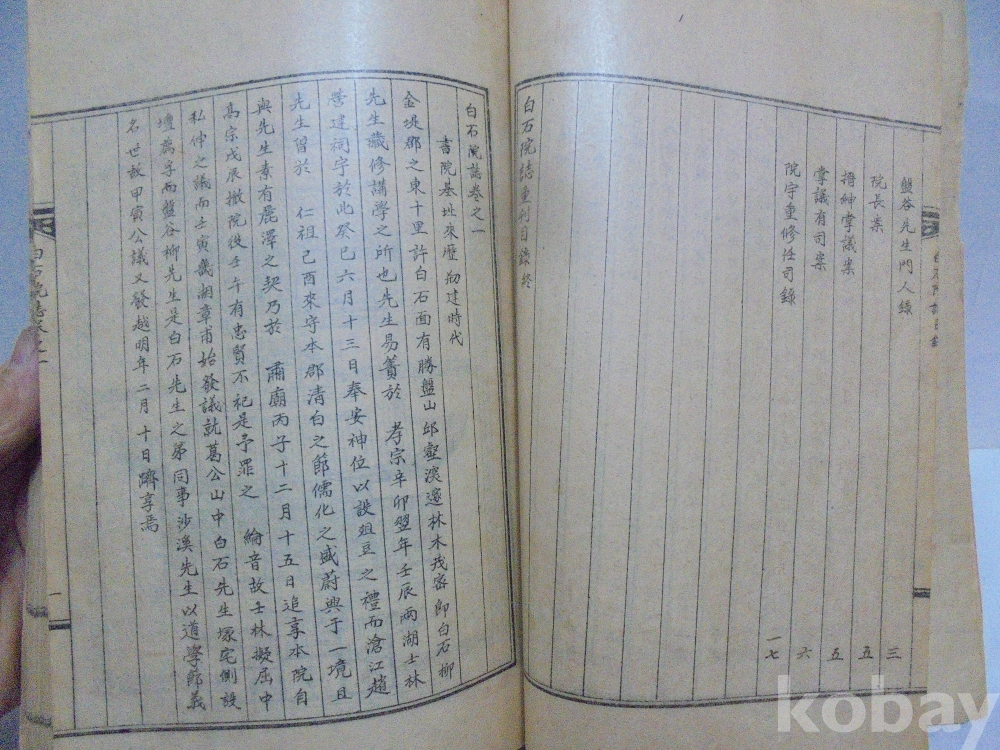 盤谷先生門人錄 三
院長案 五
搢紳掌議案 五
掌議有司案 六
院宇重修任司錄 一七
白石院誌重刊目錄終
白石院誌卷之一
書院基址來歷 刱建時代
金堤郡之東十里許白石面有勝盤山邱壑溪邊林木茂密卽白石柳
先生藏修講學之所也先生易簀於 孝宗辛卯翌年壬辰兩湖士林
營建祠宇於此癸巳六月十三日奉安神位以設俎豆之禮而滄江趙
先生曾於 仁祖己酉來守本郡淸白之節儒化之盛蔚興于一境且
與先生素有麗澤之契乃於 肅廟丙子十二月十五日追享本院自
高宗戊辰撤院後壬午有忠賢不祀是予罪之 綸音故士林擬屈中
私仲之議而壬寅幾湖章甫始發議就葛公山中白石先生塚宅側設
壇爲享而盤谷柳先生是白石先生之弟同事沙溪先生以道學節義
名世故甲寅公議又發越明年二月十日隮享焉
白石院誌卷之一
一
kobay